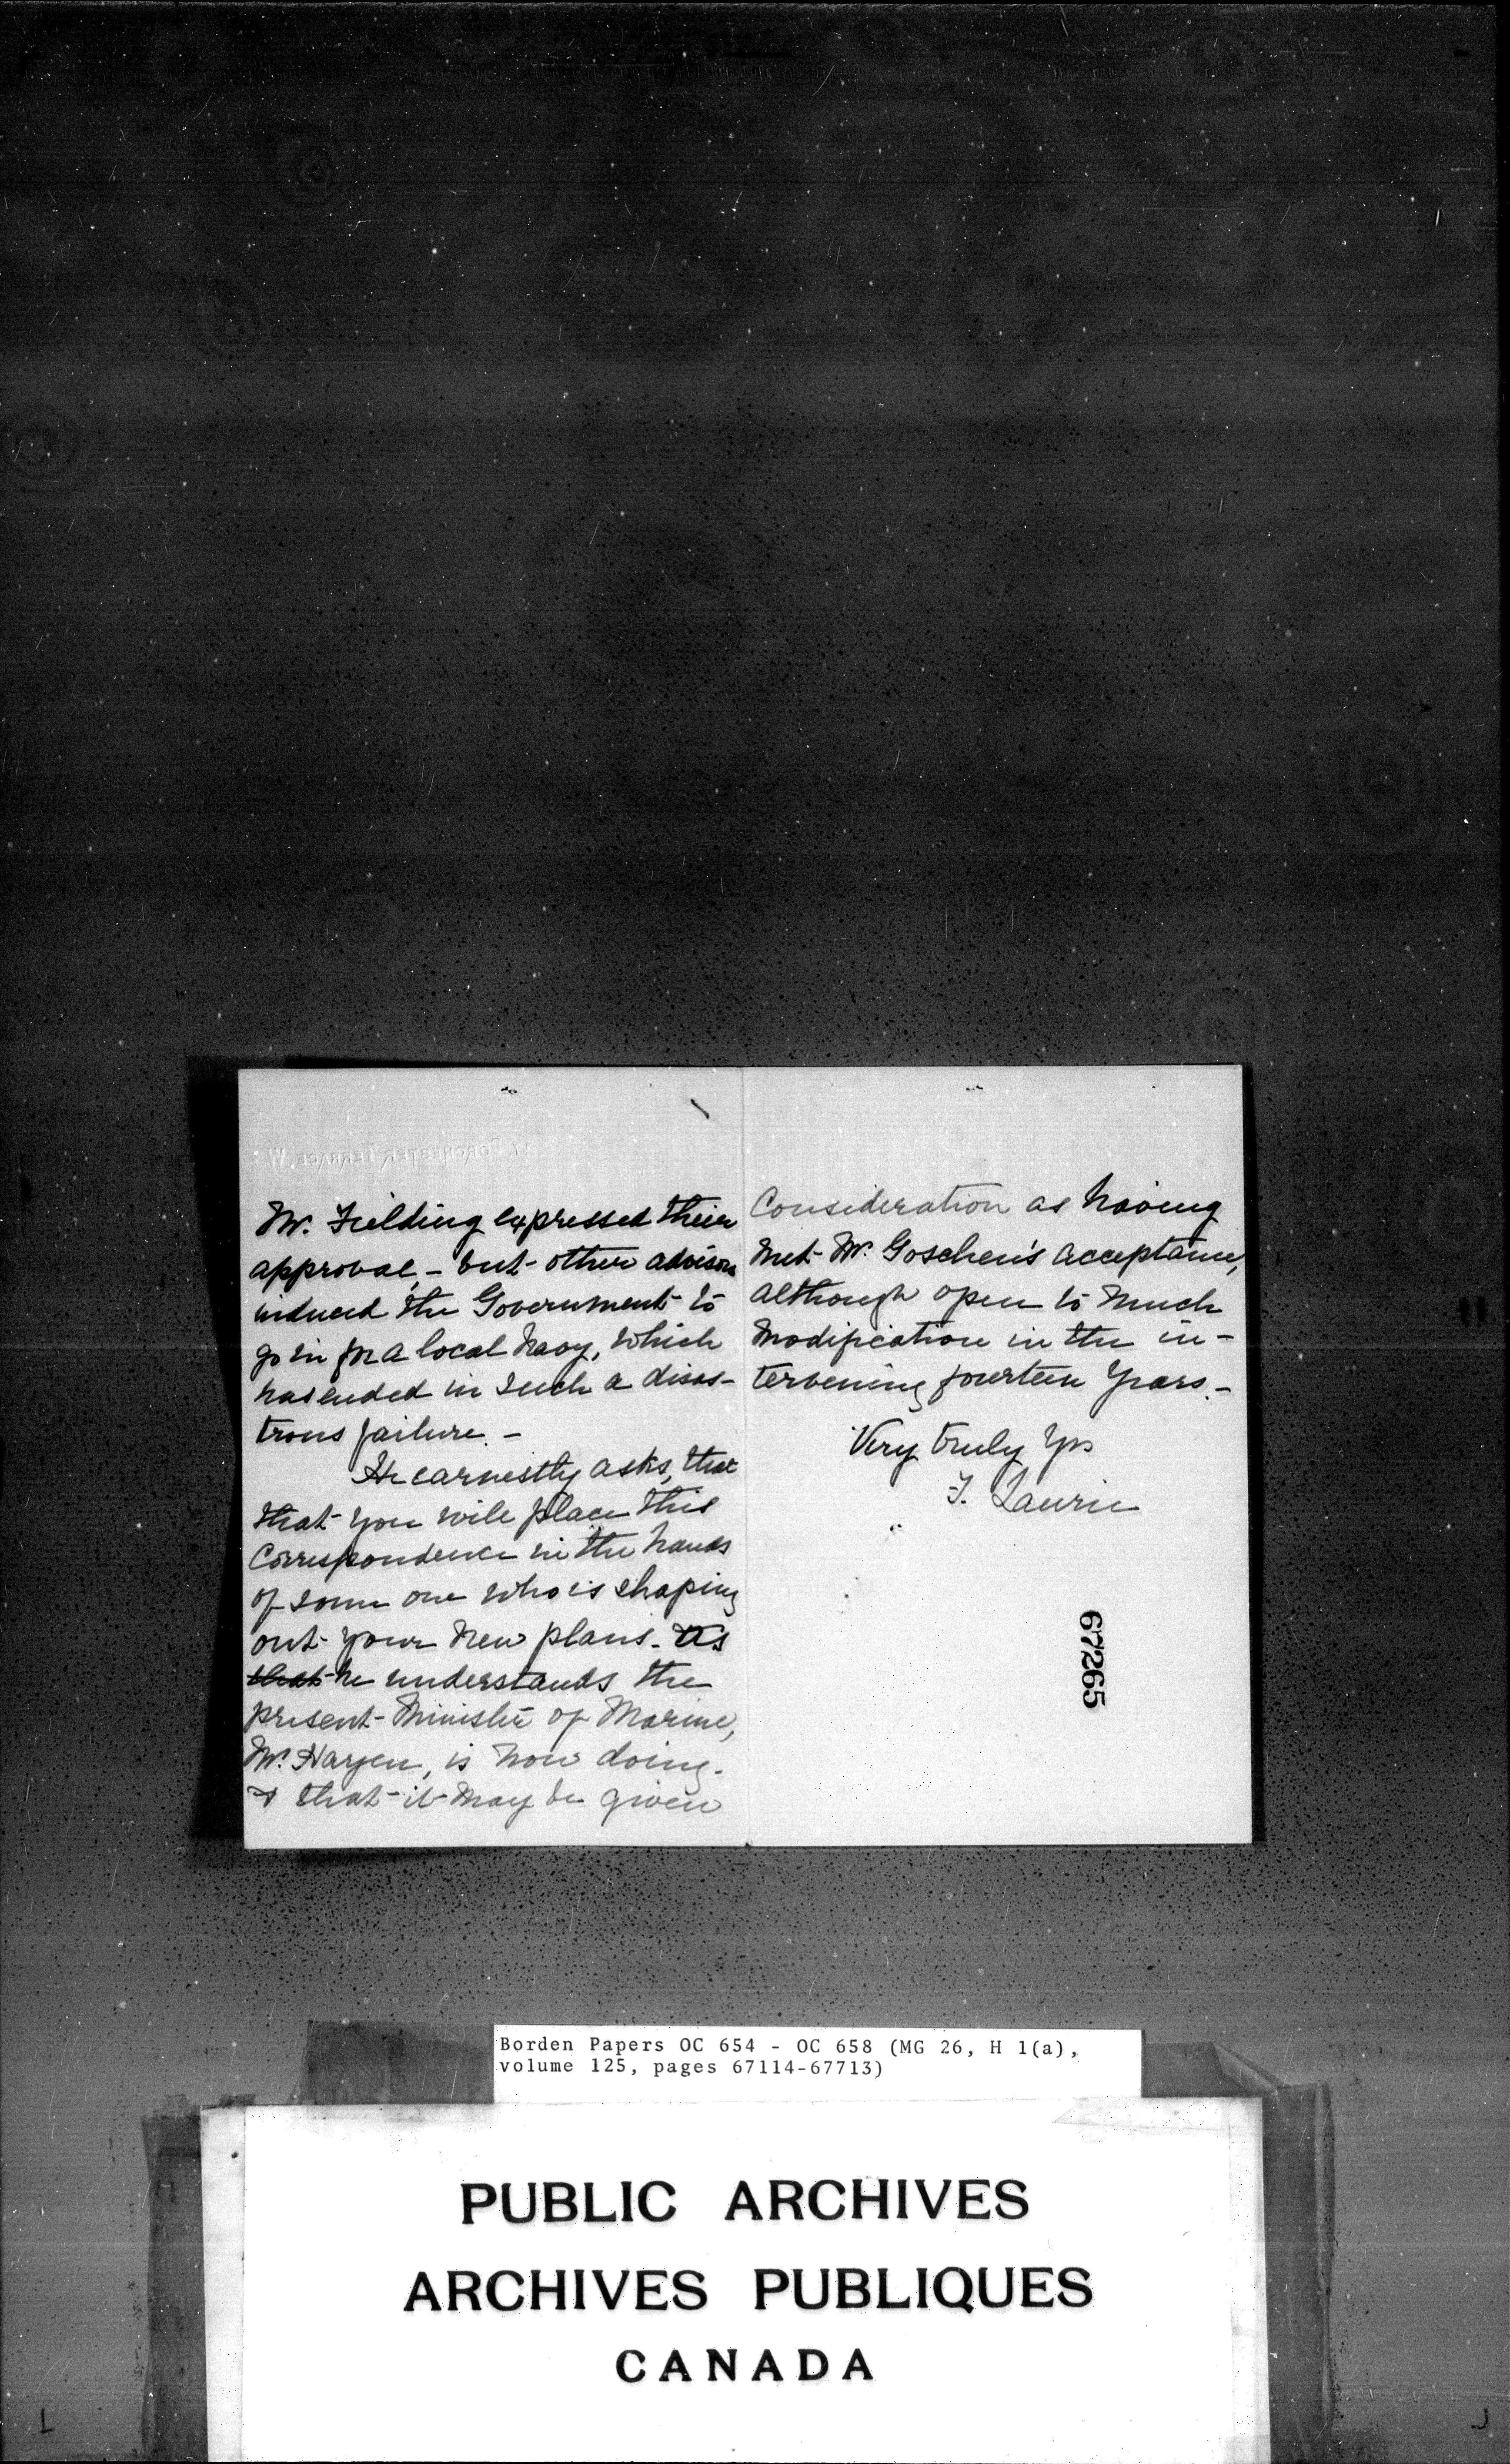 Mr. Fielding expressed their
approval, - but other advisors
induced the Government to
go in for a local Navy, which
has ended in such a disas-
trous failure. -
He earnestly asks, that
that you will place this
Correspondence in the hands
of some one who is shaping
out your new plans. As
that he understands the
present Minister of Marine,
Mr. Hazen, is now doing.
& that it may be given
Consideration as having
met Mr. Goschen's acceptance,
although open to much
modification in the in-
tervening fourteen years. -
Very truly Yrs
J. Laurie
67265
Borden Papers OC 654 - OC 658 (MG 26, H 1(a),
volume 125, pages 67114-67713)
PUBLIC ARCHIVES
ARCHIVES PUBLIQUES
CANADA